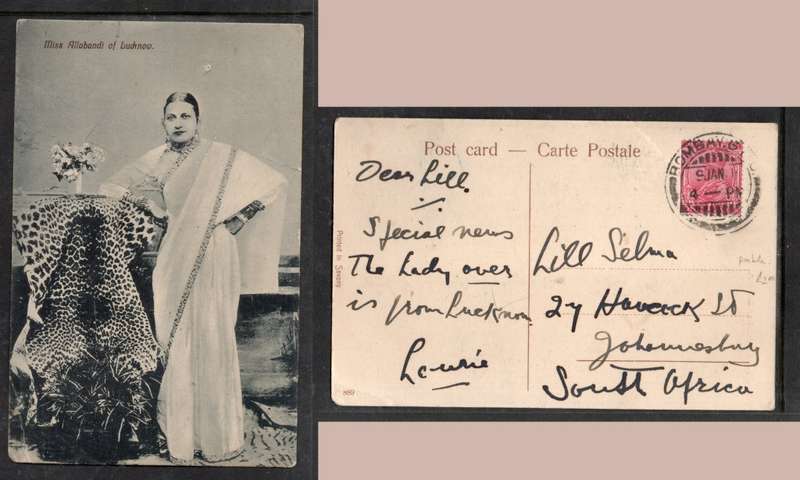 Miss Allabandi of Lucknow.
Post card — Carte Postale
Dear Lill.
Special news
The Lady over
is from Lucknow
Laurie
Lill Selma
27 Havack St
Johannesburg
South Africa
Printed in Saxony
889
BOMBAY G.
9 JAN
4 — PM